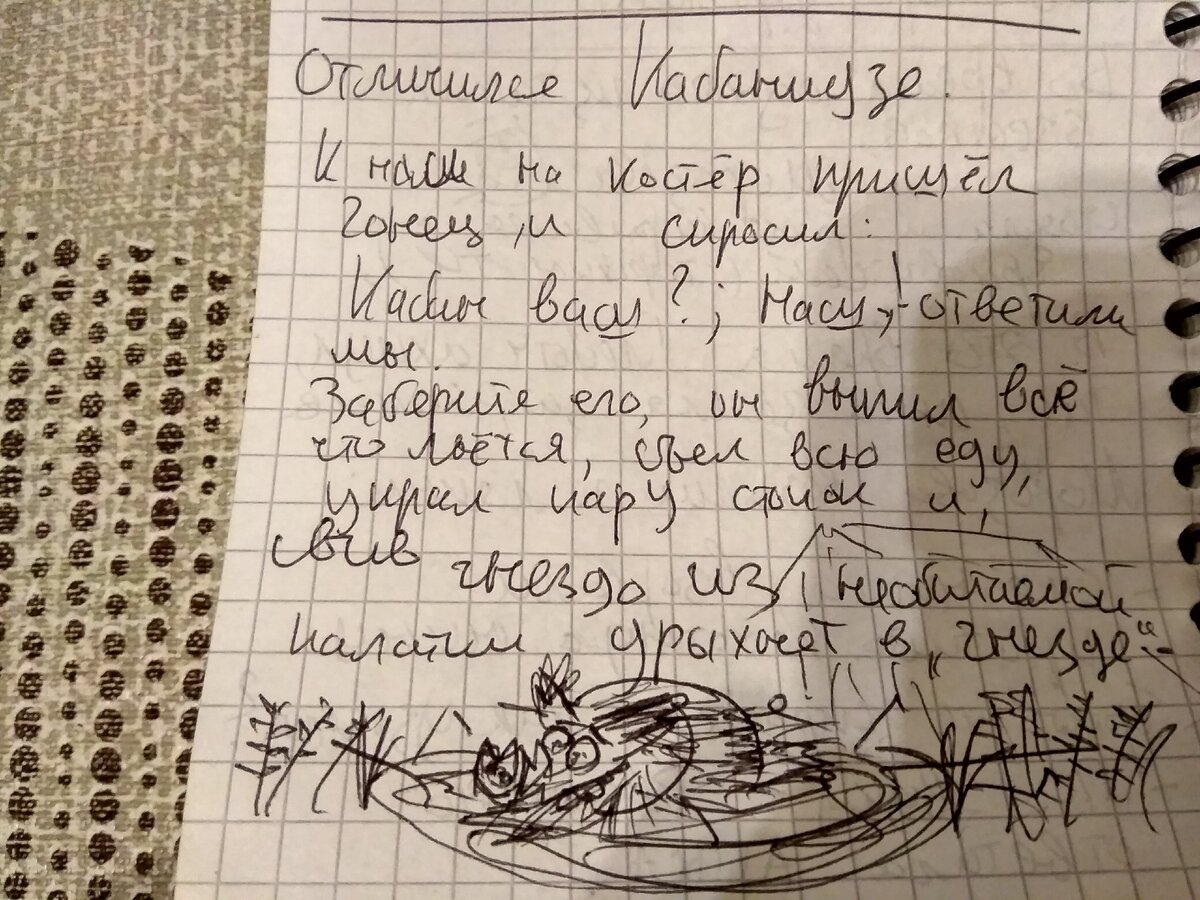 Отличился Кабаниудзе.
К нам на костёр пришёл
гонец, и спросил:
Кабан ваш?; Наш, - ответили
мы.
Заберите его, он выпил всё
что льётся, съел всю еду,
украл пару стопок и,
свив гнездо из необитаемой
палатки дрыхнет в „гнезде“